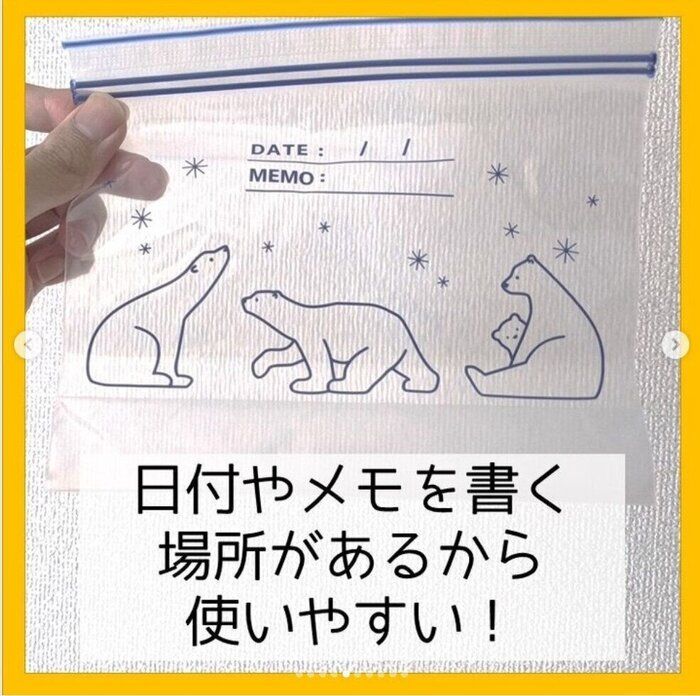 DATE : / /
MEMO :
日付やメモを書く
場所があるから
使いやすい！